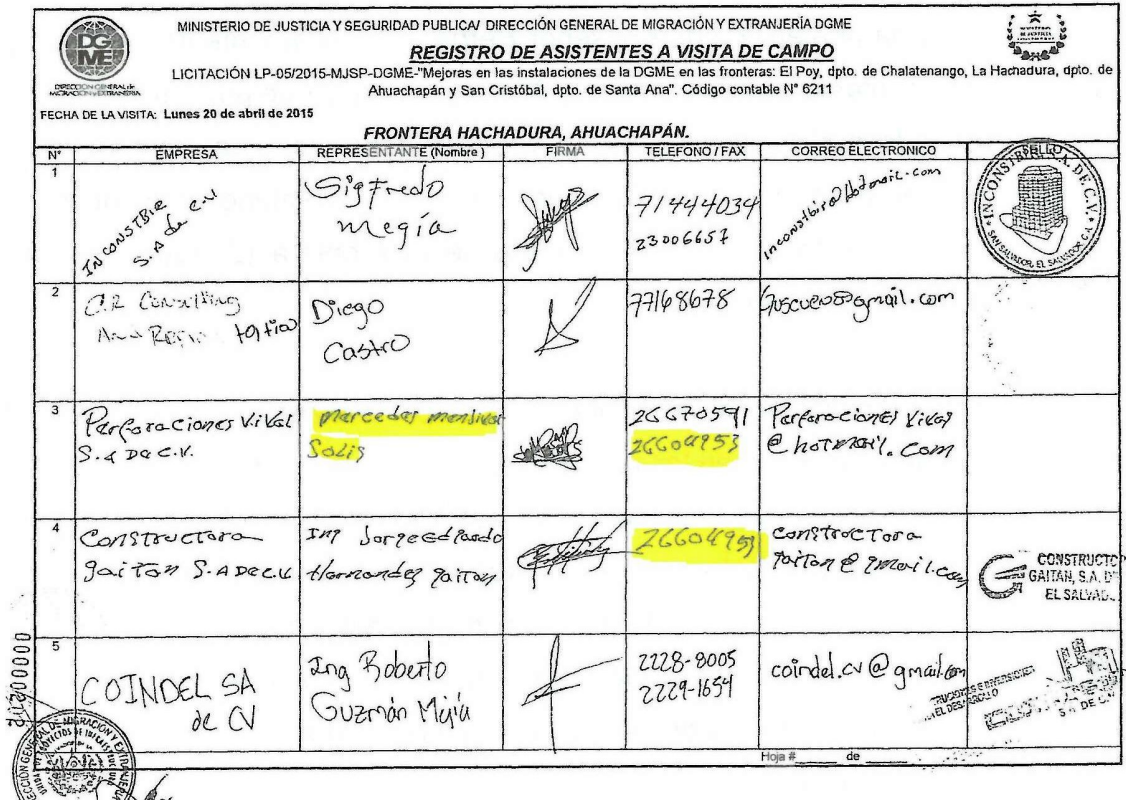 MINISTERIO DE JUSTICIA Y SEGURIDAD PUBLICA/ DIRECCIÓN GENERAL DE MIGRACIÓN Y EXTRANJERÍA DGME
REGISTRO DE ASISTENTES A VISITA DE CAMPO
LICITACIÓN LP-05/2015-MJSP-DGME-"Mejoras en las instalaciones de la DGME en las fronteras: El Poy, dpto. de Chalatenango, La Hachadura, dpto. de
Ahuachapán y San Cristóbal, dpto. de Santa Ana". Código contable N° 6211
DGME
DIRECCIÓN GENERAL de
MIGRACIÓN y EXTRANJERÍA
FECHA DE LA VISITA: Lunes 20 de abril de 2015
FRONTERA HACHADURA, AHUACHAPÁN.
N° EMPRESA REPRESENTANTE (Nombre) FIRMA TELEFONO / FAX CORREO ELECTRONICO SELLO
1
INCONSTBIE
S.A de C.V
Sigfredo
Megía
71444034
23006657
INCONSTBIR, S.A. DE C.V.
SAN SALVADOR, EL SALVADOR, C.A.
2
C.R Consulting
And
Diego
Castro
77168678
Guscuevo@gmail.com
3
Perforaciones Vival
S.A De C.V.
Mercedes Mensivar
Solis
26670591
26604953
Perforaciones Vival
@hotmail.com
4
Constructora
gaitan S.A De C.V
Ing Jorge Edgardo
Hernandez gaitan
26604953
constructora
gaitan@gmail.com
CONSTRUCTO
GAITAN, S.A. DE
EL SALVAD
5
COINDEL SA
de CV
Ing Roberto
Guzmán Mejía
2228-8005
2229-1654
coindel.cv@gmail.com
S.A. DE C.V.
Hoja # de